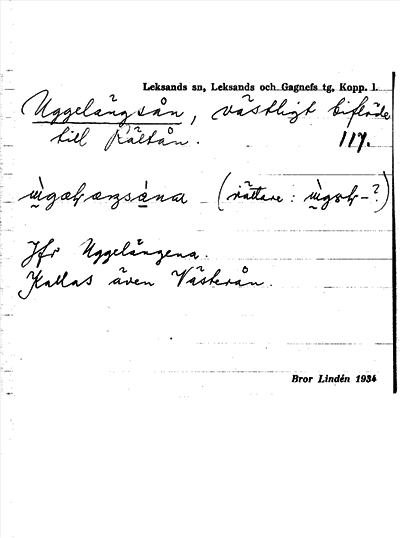 Leksands sn, Leksands och Gagnefs tg, Kopp. l.
Uggelängsån, västligt biflöde
till Rältån. 117.
(rättare:
Jfr Uggelängena.
Kallas även Västerån.
Bror Lindén 1934